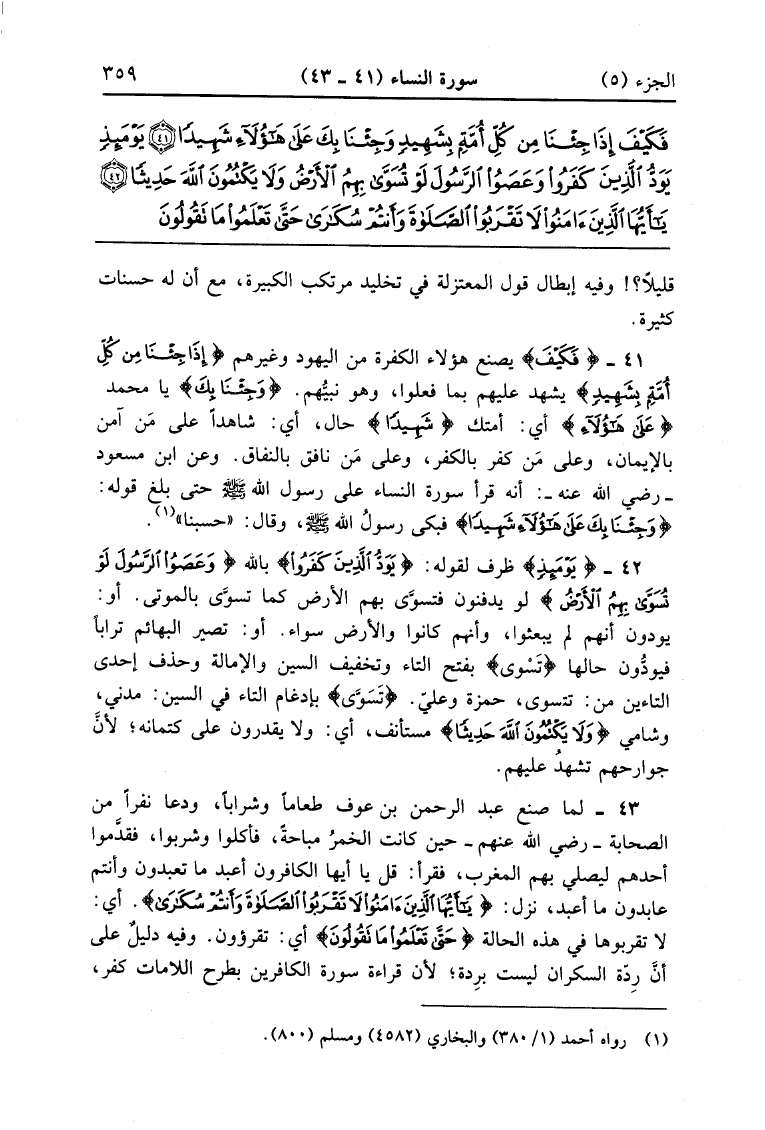 الجزء (٥)
سورة النساء (٤١ - ٤٣)
٣٥٩
فَكَيْفَ إِذَا جِئْنَا مِن كُلِّ أُمَّةٍ بِشَهِيدٍ وَجِئْنَا بِكَ عَلَىٰ هَٰٓؤُلَآءِ شَهِيدًا ۝٤١ يَوْمَئِذٍ
يَوَدُّ الَّذِينَ كَفَرُوا۟ وَعَصَوُا۟ الرَّسُولَ لَوْ تُسَوَّىٰ بِهِمُ ٱلْأَرْضُ وَلَا يَكْتُمُونَ ٱللَّهَ حَدِيثًا ۝٤٢
يَٰٓأَيُّهَا الَّذِينَ ءَامَنُوا۟ لَا تَقْرَبُوا۟ ٱلصَّلَوٰةَ وَأَنتُمْ سُكَٰرَىٰ حَتَّىٰ تَعْلَمُوا۟ مَا تَقُولُونَ
قليلاً؟! وفيه إبطال قول المعتزلة في تخليد مرتكب الكبيرة، مع أن له حسنات
كثيرة.
٤١ - ﴿ فَكَيْفَ﴾ يصنع هؤلاء الكفرة من اليهود وغيرهم ﴿إِذَا جِئْنَا مِن كُلِّ
أُمَّةٍ بِشَهِيدٍ﴾ يشهد عليهم بما فعلوا، وهو نبيُّهم. ﴿وَجِئْنَا بِكَ﴾ يا محمد
﴿عَلَىٰ هَٰٓؤُلَآءِ ﴾ أي: أمتك ﴿ شَهِيدًا ﴾ حال، أي: شاهداً على مَن آمن
بالإيمان، وعلى مَن كفر بالكفر، وعلى مَن نافق بالنفاق. وعن ابن مسعود
- رضي الله عنه -: أنه قرأ سورة النساء على رسول الله ﷺ حتى بلغ قوله:
﴿وَجِئْنَا بِكَ عَلَىٰ هَٰٓؤُلَآءِ شَهِيدًا﴾ فبكى رسولُ الله ﷺ، وقال: «حسبنا»(١).
٤٢ - ﴿ يَوْمَئِذٍ﴾ ظرف لقوله: ﴿يَوَدُّ الَّذِينَ كَفَرُوا۟﴾ بالله ﴿ وَعَصَوُا۟ الرَّسُولَ لَوْ
تُسَوَّىٰ بِهِمُ ٱلْأَرْضُ ﴾ لو يدفنون فتسوَّى بهم الأرض كما تسوَّى بالموتى. أو:
يودون أنهم لم يبعثوا، وأنهم كانوا والأرض سواء. أو: تصير البهائم تراباً
فيودُّون حالها ﴿تَسْوى﴾ بفتح التاء وتخفيف السين والإمالة وحذف إحدى
التاءين من: تتسوى، حمزة وعليّ. ﴿تَسَوَّى﴾ بإدغام التاء في السين: مدني،
وشامي ﴿وَلَا يَكْتُمُونَ ٱللَّهَ حَدِيثًا﴾ مستأنف، أي: ولا يقدرون على كتمانه؛ لأنَّ
جوارحهم تشهدُ عليهم.
٤٣ - لما صنع عبد الرحمن بن عوف طعاماً وشراباً، ودعا نفراً من
الصحابة - رضي الله عنهم - حين كانت الخمرُ مباحةً، فأكلوا وشربوا، فقدَّموا
أحدهم ليصلي بهم المغرب، فقرأ: قل يا أيها الكافرون أعبد ما تعبدون وأنتم
عابدون ما أعبد، نزل: ﴿ يَٰٓأَيُّهَا الَّذِينَ ءَامَنُوا۟ لَا تَقْرَبُوا۟ ٱلصَّلَوٰةَ وَأَنتُمْ سُكَٰرَىٰ﴾. أي:
لا تقربوها في هذه الحالة ﴿ حَتَّىٰ تَعْلَمُوا۟ مَا تَقُولُونَ﴾ أي: تقرؤون. وفيه دليلٌ على
أنَّ رِدّة السكران ليست بردة؛ لأن قراءة سورة الكافرين بطرح اللامات كفر،
(١) رواه أحمد (٣٨٠/١) والبخاري (٤٥٨٢) ومسلم (٨٠٠).